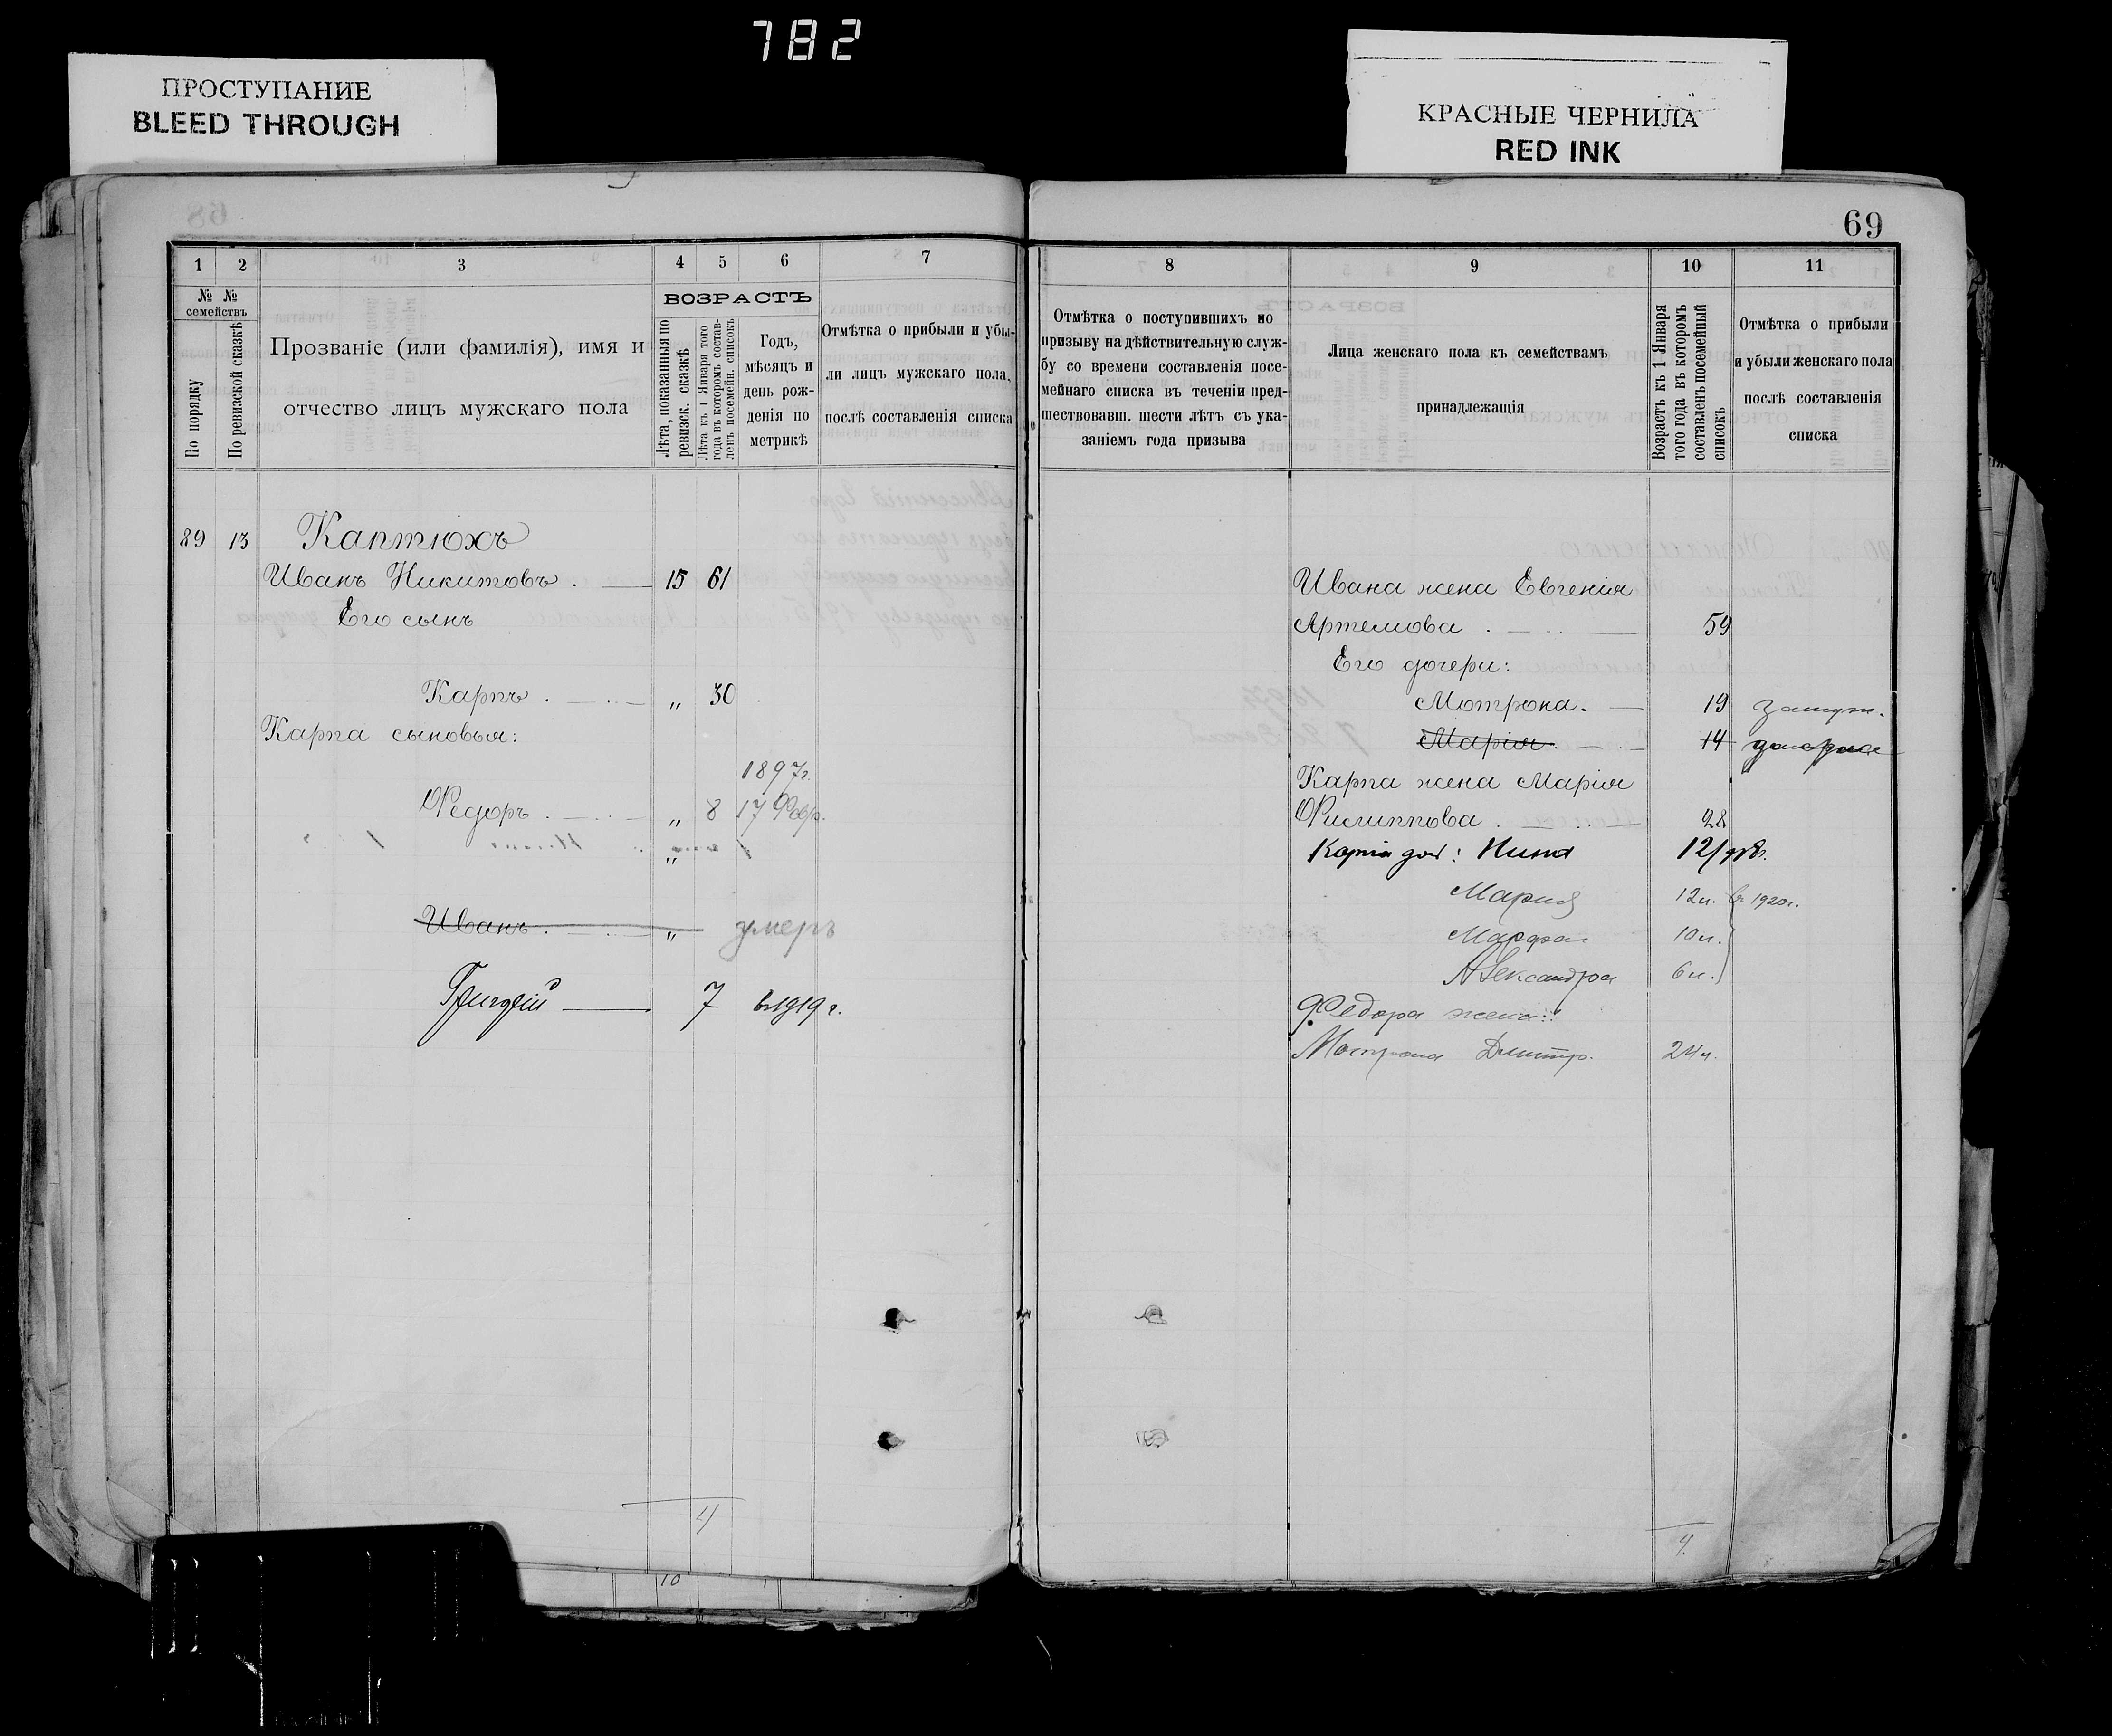 782
ПРОСТУПАНИЕ
BLEED THROUGH
КРАСНЫЕ ЧЕРНИЛА
RED INK
69
1 2 3 4 5 6 7
№ № семействъ
По порядку
По ревизской сказкѣ
Прозваніе (или фамилія), имя и
отчество лицъ мужскаго пола
ВОЗРАСТЪ
Лѣта, показанныя по
ревизск. сказкѣ
Лѣта къ 1 Января того
года въ которомъ состав-
ленъ посемейн. списокъ
Годъ,
мѣсяцъ и
день рож-
денія по
метрикѣ
Отмѣтка о прибыли и убы-
ли лицъ мужскаго пола,
послѣ составленія списка
89 13 Каптюхъ
Иванъ Никитовъ . 15 61
Его сынъ
Карпъ . „ 30
Карпа сыновья:
1897г.
Федоръ . „ 8 17 Февр.
„
Иванъ . „ умеръ
7 въ 1919 г.
4
10
8 9 10 11
Отмѣтка о поступившихъ по
призыву на дѣйствительную служ-
бу со времени составленія посе-
мейнаго списка въ теченіи пред-
шествовавш. шести лѣтъ съ ука-
заніемъ года призыва
Лица женскаго пола къ семействамъ
принадлежащія
Возрастъ къ 1 Января
того года въ которомъ
составленъ посемейный
списокъ
Отмѣтка о прибыли
и убыли женскаго пола
послѣ составленія
списка
Ивана жена Евгенія
Артемова . 59
Его дочери:
Мотрона. 19 замуж.
Марія. 14
Карпа жена Марія
Филиппова . 28
Карпа доч: Нина 12
Мария 12л. в 1920г.
Марфа 10л.
Александра 6л.
Федора жена:
Мотрона Дмитр. 24л.
4.